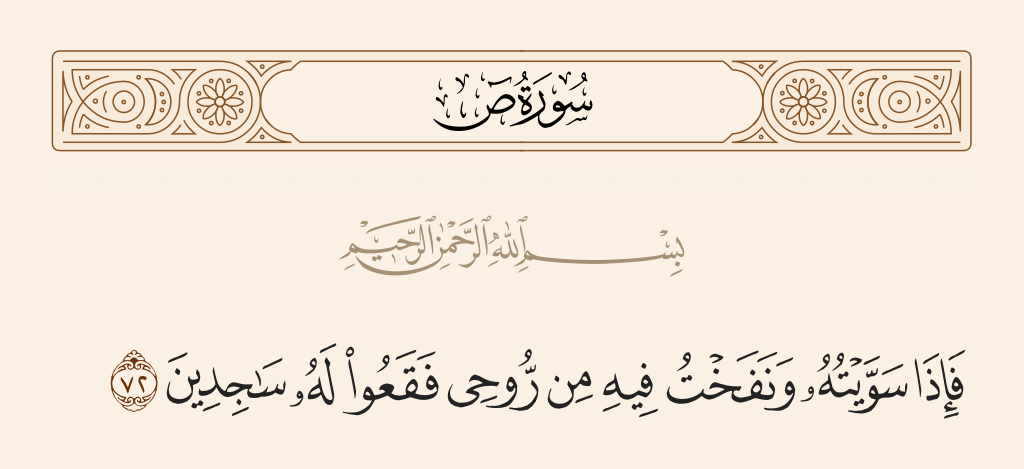 سُورَةُ صٓ
بِسْمِ ٱللَّهِ ٱلرَّحْمَٰنِ ٱلرَّحِيمِ
فَإِذَا سَوَّيْتُهُۥ وَنَفَخْتُ فِيهِ مِن رُّوحِى فَقَعُوا۟ لَهُۥ سَٰجِدِينَ ٧٢